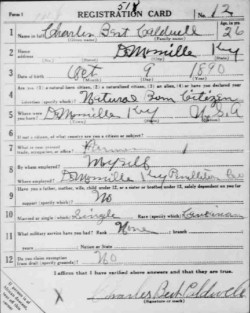 Form 1
518
REGISTRATION CARD
No. 12
1 Name in full Charles Bert Caldwell
Age, in yrs. 26
2 Home address DeMossville Ky
3 Date of birth Oct 9 1890
4 Are you (1) a natural-born citizen, (2) a naturalized citizen, (3) an alien, (4) or have you declared your intention (specify which)? Natural Born Citizen
5 Where were you born? DeMossville Ky U.S.A
6 If not a citizen, of what country are you a citizen or subject?
7 What is your present trade, occupation, or office? Farmer
8 By whom employed? My self
Where employed? DeMossville Ky Pendleton
9 Have you a father, mother, wife, child under 12, or a sister or brother under 12, solely dependent on you for support (specify which)? No
10 Married or single (which)? Single Race (specify which)? Caucasian
11 What military service have you had? Rank None ; branch
years ; Nation or State
12 Do you claim exemption from draft (specify grounds)? No
I affirm that I have verified above answers and that they are true.
X Charles Bert Caldwell
(Signature or mark)